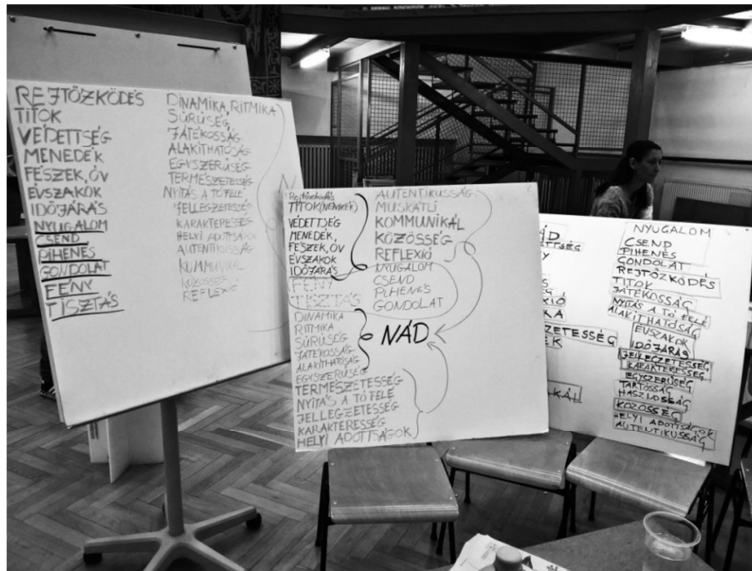 REJTŐZKÖDÉS
TITOK
VÉDETTSÉG
MENEDÉK
FÉSZEK, ÓV
ÉVSZAKOK
IDŐJÁRÁS
NYUGALOM
CSEND
PIHENÉS
GONDOLAT
FÉNY
TISZTÁS
DINAMIKA, RITMIKA
SŰRŰSÉG
JÁTÉKOSSÁG
ALAKÍTHATÓSÁG
EGYSZERŰSÉG
TERMÉSZETESSÉG
NYITÁS A TÓ FELÉ
JELLEGZETESSÉG
KARAKTERESSÉG
HELYI ADOTTSÁGOK
AUTENTIKUSSÁG
KOMMUNIKÁL
KÖZÖSSÉG
REFLEXIÓ
Rejtőzködés
TITOK
VÉDETTSÉG
MENEDÉK,
FÉSZEK, ÓV
ÉVSZAKOK
IDŐJÁRÁS
FÉNY
TISZTÁS
DINAMIKA
RITMIKA
SŰRŰSÉG
JÁTÉKOSSÁG
ALAKÍTHATÓSÁG
EGYSZERŰSÉG
TERMÉSZETESSÉG
NYITÁS A TÓ FELÉ
JELLEGZETESSÉG
KARAKTERESSÉG
HELYI ADOTTSÁGOK
AUTENTIKUSSÁG
MUSKÁTLI
KOMMUNIKÁL
KÖZÖSSÉG
REFLEXIÓ
NYUGALOM
CSEND
PIHENÉS
GONDOLAT
NÁD
NYUGALOM
CSEND
PIHENÉS
GONDOLAT
REJTŐZKÖDÉS
TITOK
JÁTÉKOSSÁG
NYITÁS A TÓ FELÉ
ALAKÍTHATÓSÁG
ÉVSZAKOK
IDŐJÁRÁS
JELLEGZETESSÉG
KARAKTERESSÉG
EGYSZERŰSÉG
TARTÓSSÁG
HASZNOSSÁG
KÖZÖSSÉG
HELYI ADOTTSÁGOK
AUTENTIKUSSÁG